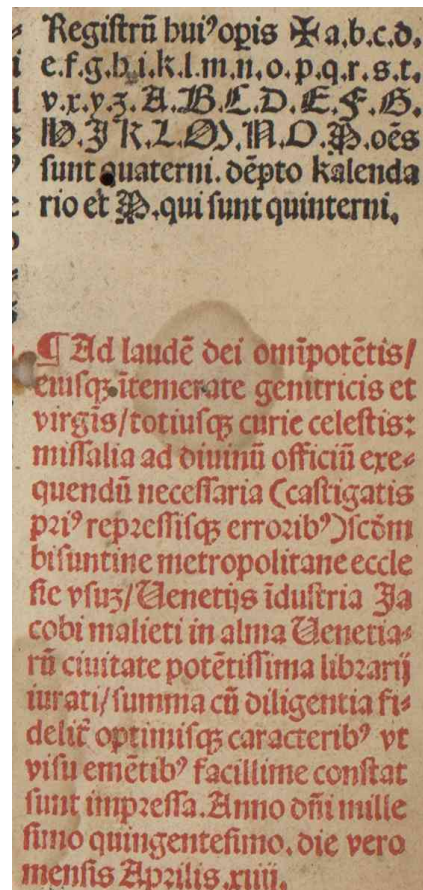 Registrũ huiꝰ opis ✠ a.b.c.d.
e.f.g.h.i.k.l.m.n.o.p.q.r.s.t.
v.x.y.z. A.B.C.D.E.F.G.
H.I K.L.M.N.O.P.oẽs
sunt quaterni. dẽpto kalenda
rio et P.qui sunt quinterni.
¶ Ad laudẽ dei omĩpotẽtis/
eiusqꝫ ĩtemerate genitricis et
virgĩs/totiusqꝫ curie celestis:
missalia ad diuinũ officiũ exe-
quendũ necessaria (castigatis
priꝰ repressisqꝫ erroribꝰ)scďm
bisuntine metropolitane eccle
sie vsuʒ/Uenetijs ĩdustria Ja
cobi malieti in alma Uenetia-
rũ ciuitate potẽtissima librarij
iurati/summa cũ diligentia fi-
delit̃ optimisqꝫ caracteribꝰ vt
visu emẽtibꝰ facillime constat
sunt impressa.Anno dñi mille
simo quingentesimo. die vero
mensis Aprilis.xiiij.